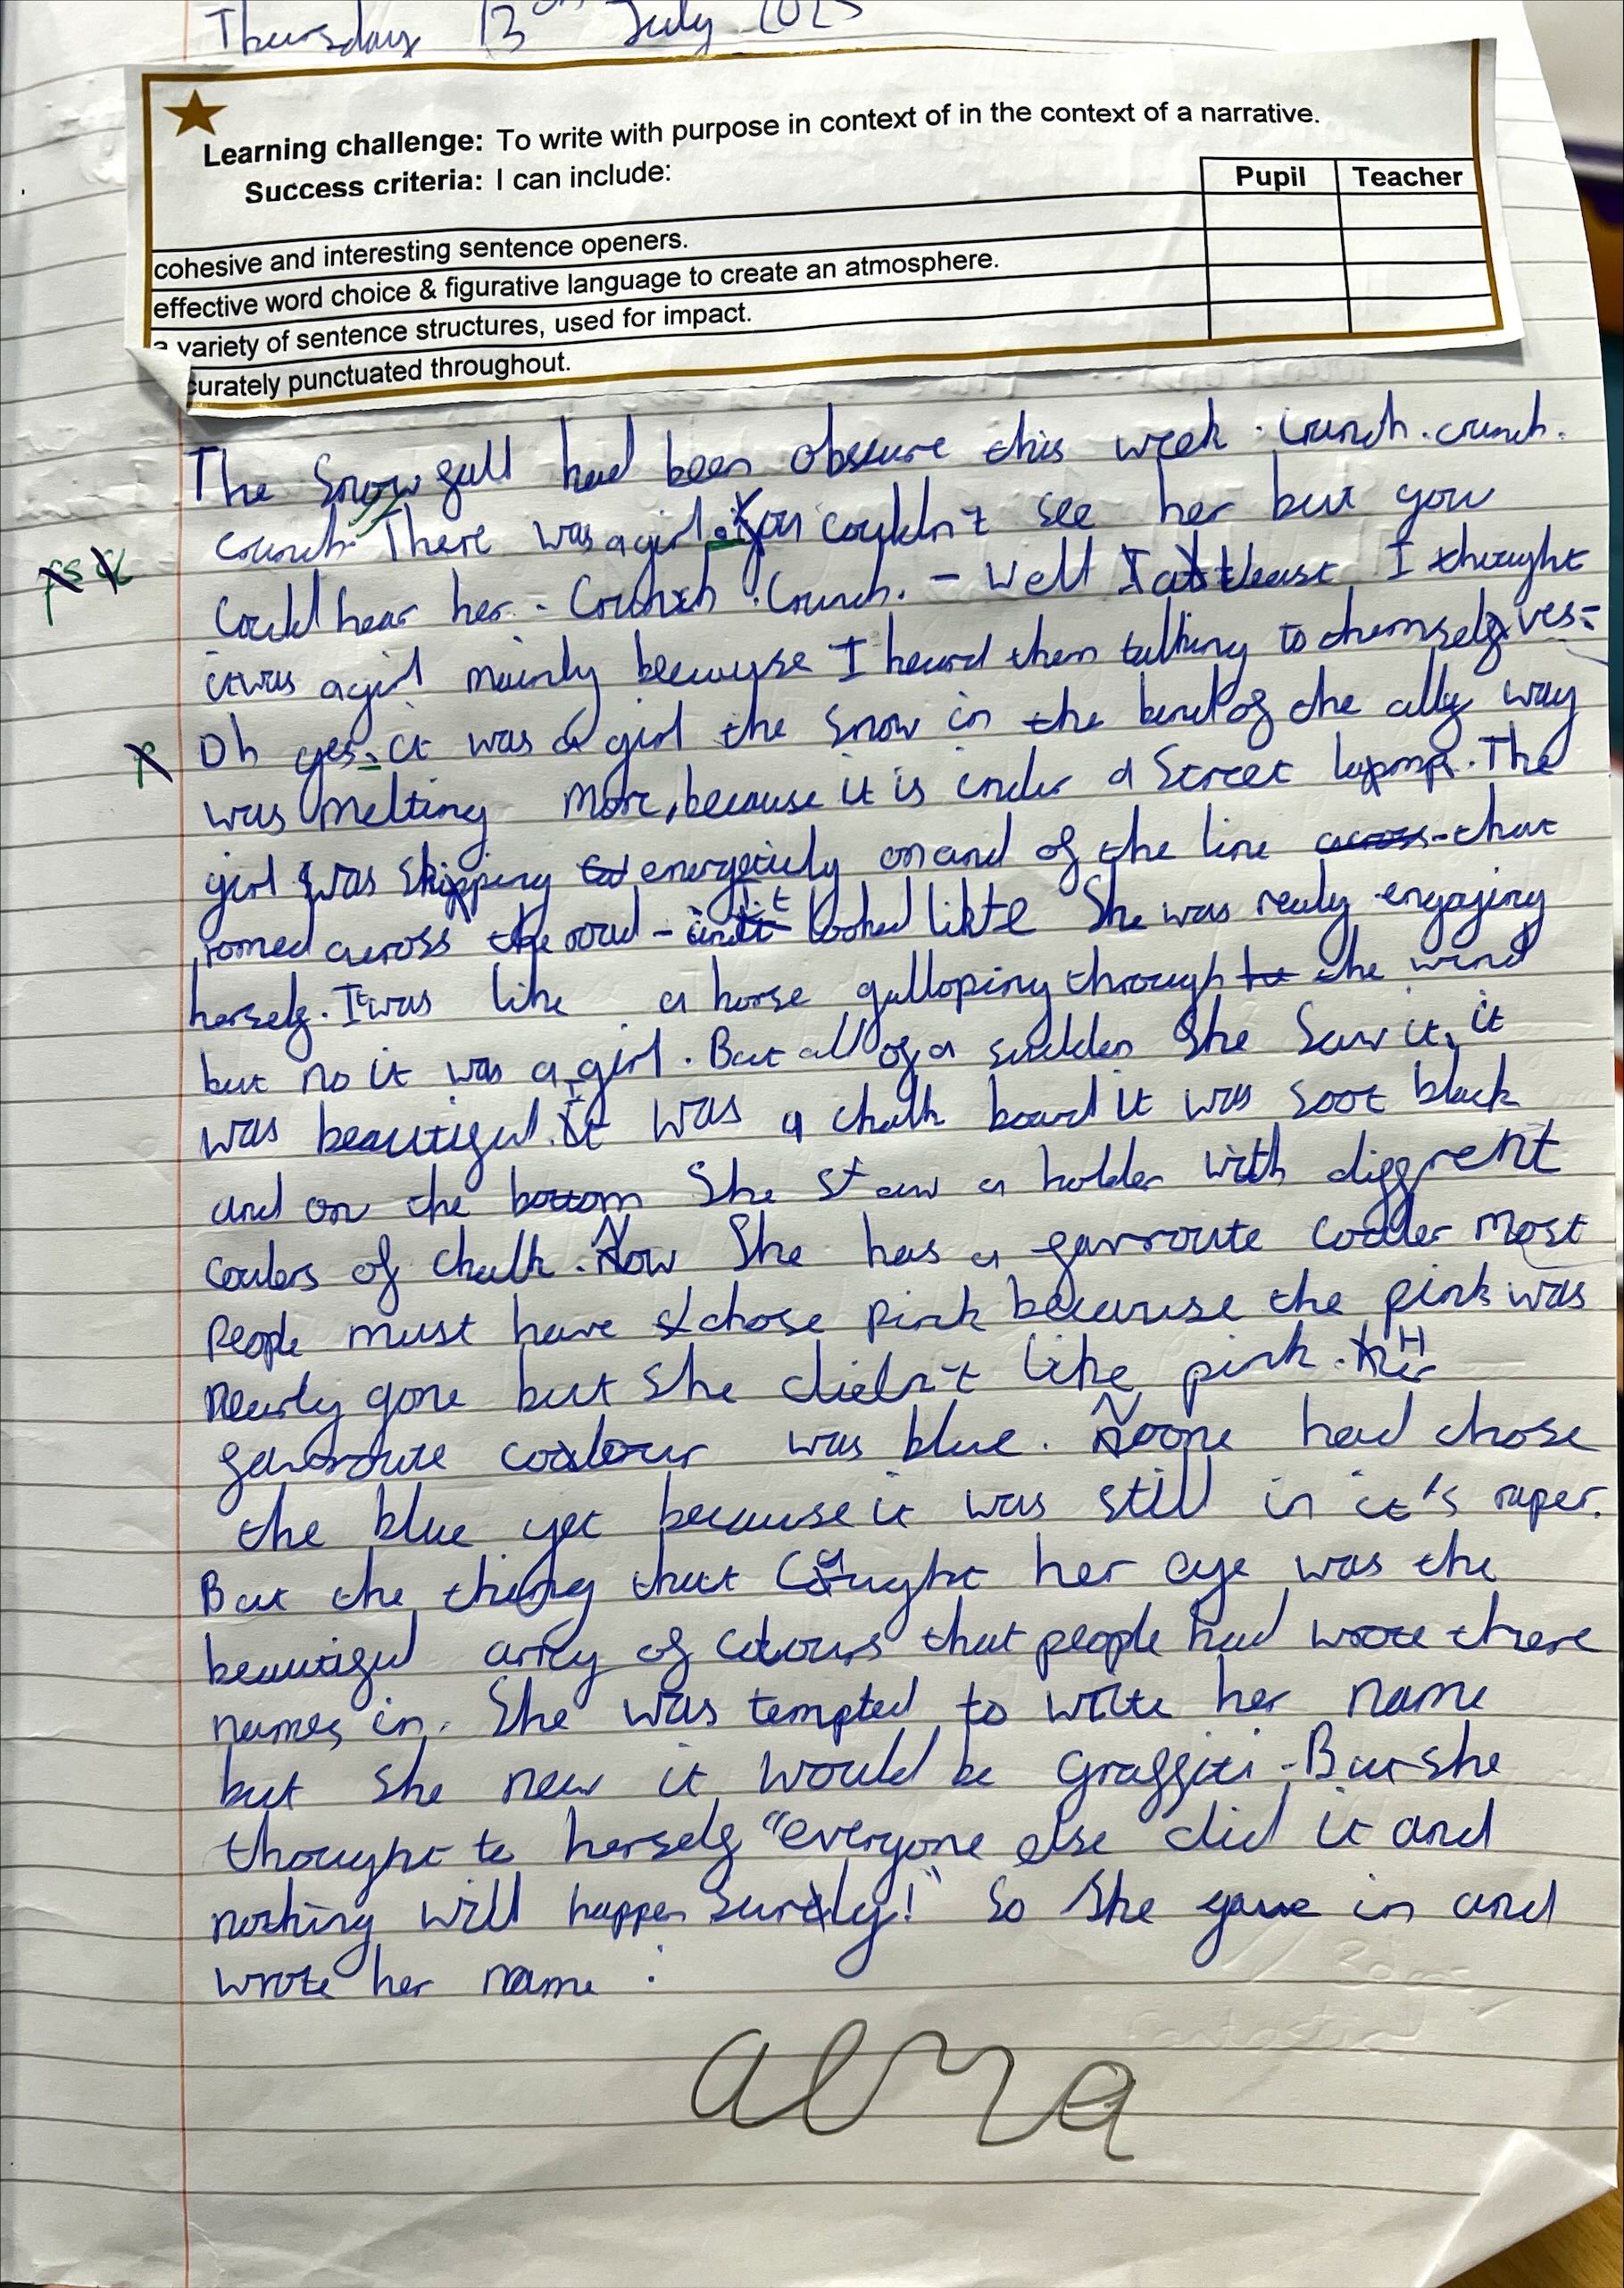 Thursday 13th July 2023
Learning challenge: To write with purpose in context of in the context of a narrative.
Success criteria: I can include:
Pupil Teacher
cohesive and interesting sentence openers.
effective word choice & figurative language to create an atmosphere.
a variety of sentence structures, used for impact.
curately punctuated throughout.
The Snow fall had been obscure this week. Crunch. crunch.
crunch. There was a girl. You couldn't see her but you
Could hear her. Crunch. Crunch. - Well at least I thought
it was a girl mainly because I heard them talking to themselves-
Oh yes, it was a girl the snow in the bend of the ally way
was melting more, because it is under a street lamp. The
girl was skipping energeticly on and of the line across that
romed across the road - it looked like She was realy engaging
herself. It was like a horse galloping through the wind
but no it was a girl. But all of a sudden She Saw it, it
was beautiful. It was a chalk board it was soot black
and on the bottom She saw a holder with diffrent
coulers of chalk. Now She has a favroute couler most
People must have chose pink because the pink was
nearly gone but she dieln't like pink. Her
favroute colour was blue. Noone had chose
the blue yet because it was still in it's raper.
But the thing that Caught her eye was the
beautiful array of colours that people had wrote there
names in. She was tempted to write her name
but she new it would be graffiti. But she
thought to herself "everyone else did it and
nothing will happen surely!" So She gave in and
wrote her name :
alma